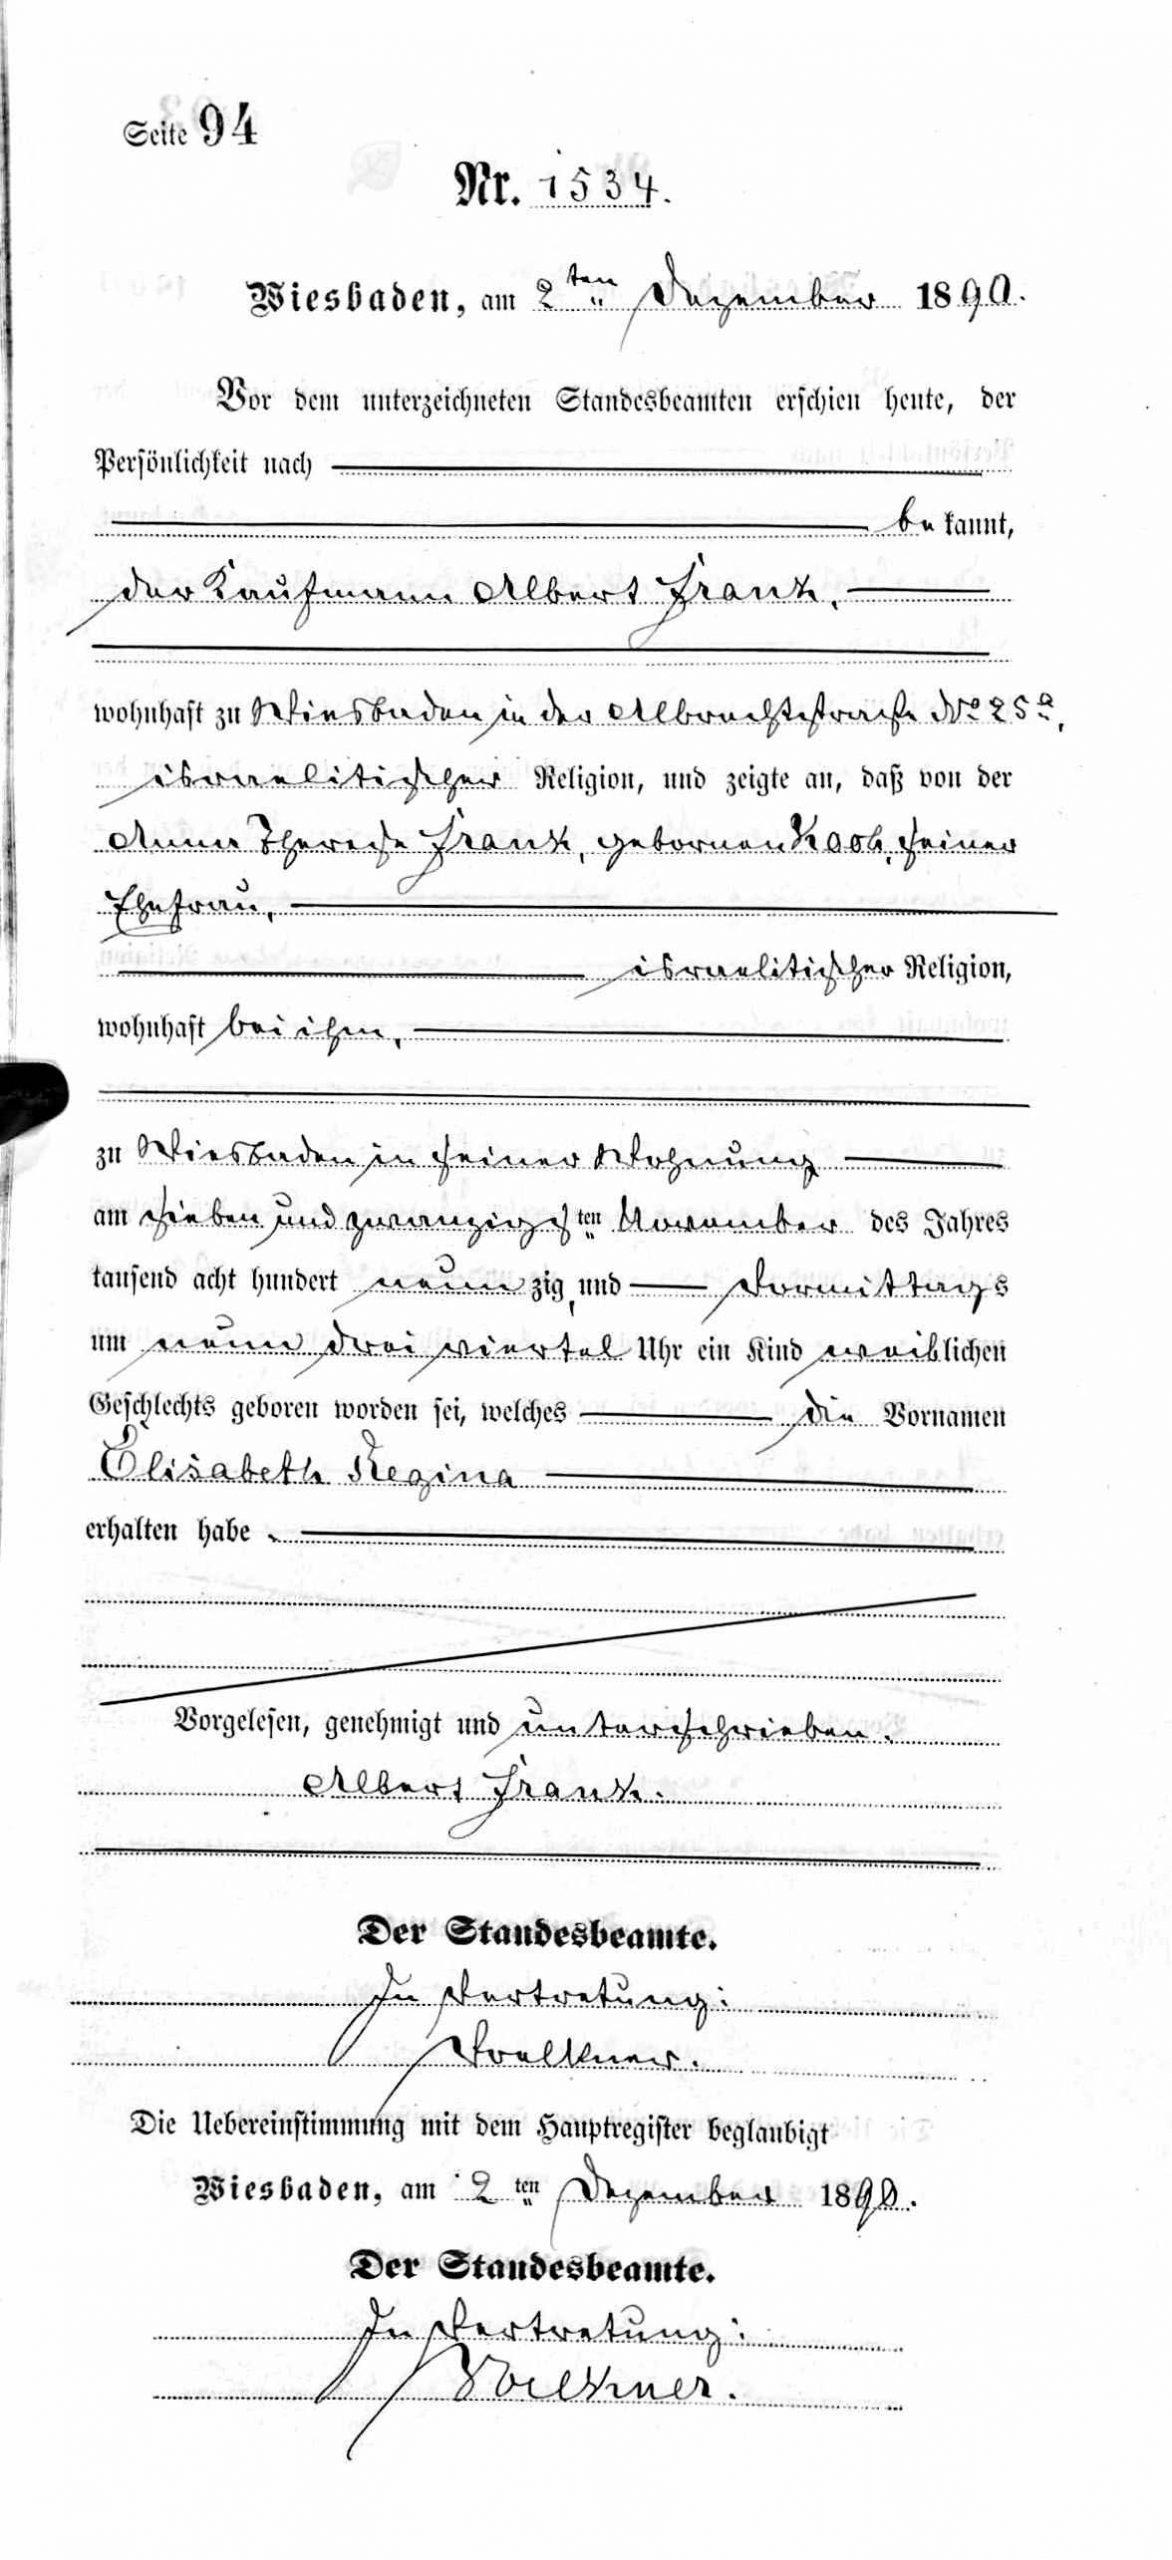 Seite 94
Nr. 1534.
Wiesbaden, am 2ten Dezember 1890.
Vor dem unterzeichneten Standesbeamten erschien heute, der
Persönlichkeit nach
bekannt,
der Kaufmann Albert Frank,
wohnhaft zu Wiesbaden in der Albrechtstraße No 25a,
israelitischer Religion, und zeigte an, daß von der
Anna Therese Frank, gebornen Kaob, seiner
Ehefrau,
israelitischer Religion,
wohnhaft bei ihm,
zu Wiesbaden in seiner Wohnung
am sieben und zwanzigsten November des Jahres
tausend acht hundert neunzig, und Vormittags
um neun drei viertel Uhr ein Kind weiblichen
Geschlechts geboren worden sei, welches die Vornamen
Elisabeth Regina
erhalten habe.
Vorgelesen, genehmigt und unterschrieben.
Albert Frank.
Der Standesbeamte.
In Vertretung:
Voelkner.
Die Uebereinstimmung mit dem Hauptregister beglaubigt
Wiesbaden, am 2ten Dezember 1890.
Der Standesbeamte.
In Vertretung:
Voelkner.